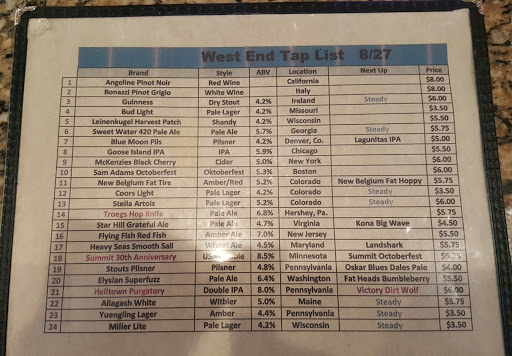 West End Tap List 8/27
Brand Style ABV Location Next Up Price
1 Angeline Pinot Noir Red Wine California $8.00
2 Bonazzi Pinot Grigio White Wine Italy $8.00
3 Guinness Dry Stout 4.2% Ireland Steady $6.00
4 Bud Light Pale Lager 4.2% Missouri $3.50
5 Leinenkugel Harvest Patch Shandy 4.2% Wisconsin $5.50
6 Sweet Water 420 Pale Ale Pale Ale 5.7% Georgia Steady $5.75
7 Blue Moon Pils Pilsner 4.2% Denver, Co. Lagunitas IPA $5.00
8 Goose Island IPA IPA 5.9% Chicago $5.50
9 McKenzies Black Cherry Cider 5.0% New York $6.00
10 Sam Adams Octoberfest Oktoberfest 5.3% Boston $6.00
11 New Belgium Fat Tire Amber/Red 5.2% Colorado New Belgium Fat Hoppy $5.75
12 Coors Light Pale Lager 4.2% Colorado Steady $3.50
13 Stella Artois Pale Lager 5.2% Colorado Steady $6.00
14 Troegs Hop Knife Pale Ale 6.8% Hershey, Pa. $5.75
15 Star Hill Grateful Ale Pale Ale 4.7% Virginia Kona Big Wave $4.50
16 Flying Fish Red Fish Amber Ale 7.0% New Jersey $5.50
17 Heavy Seas Smooth Sail Wheat Ale 4.5% Maryland Landshark $5.75
18 Summit 30th Anniversary 8.5% Minnesota Summit Octoberfest
19 Stouts Pilsner Pilsner 4.8% Pennsylvania Oskar Blues Dales Pale $4.00
20 Elysian Superfuzz Pale Ale 6.4% Washington Fat Heads Bumbleberry $5.50
21 Helltown Purgatory Double IPA 8.0% Pennsylvania Victory Dirt Wolf $6.00
22 Allagash White Witbier 5.0% Maine Steady $5.75
23 Yuengling Lager Amber 4.4% Pennsylvania Steady $3.50
24 Miller Lite Pale Lager 4.2% Wisconsin Steady $3.50